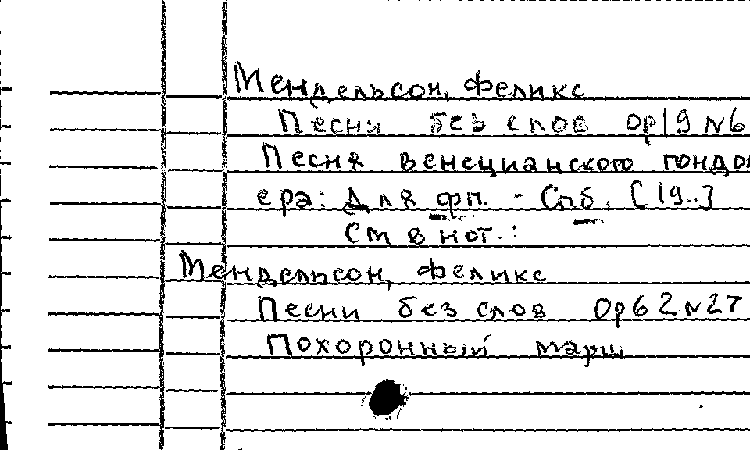 Мендельсон, Феликс
Песни без слов op19 N6
Песня венецианского гондо
ера: Для фп. - Спб. [19..]
См в нот.:
Мендельсон, Феликс
Песни без слов Op62 N27
Похоронный марш